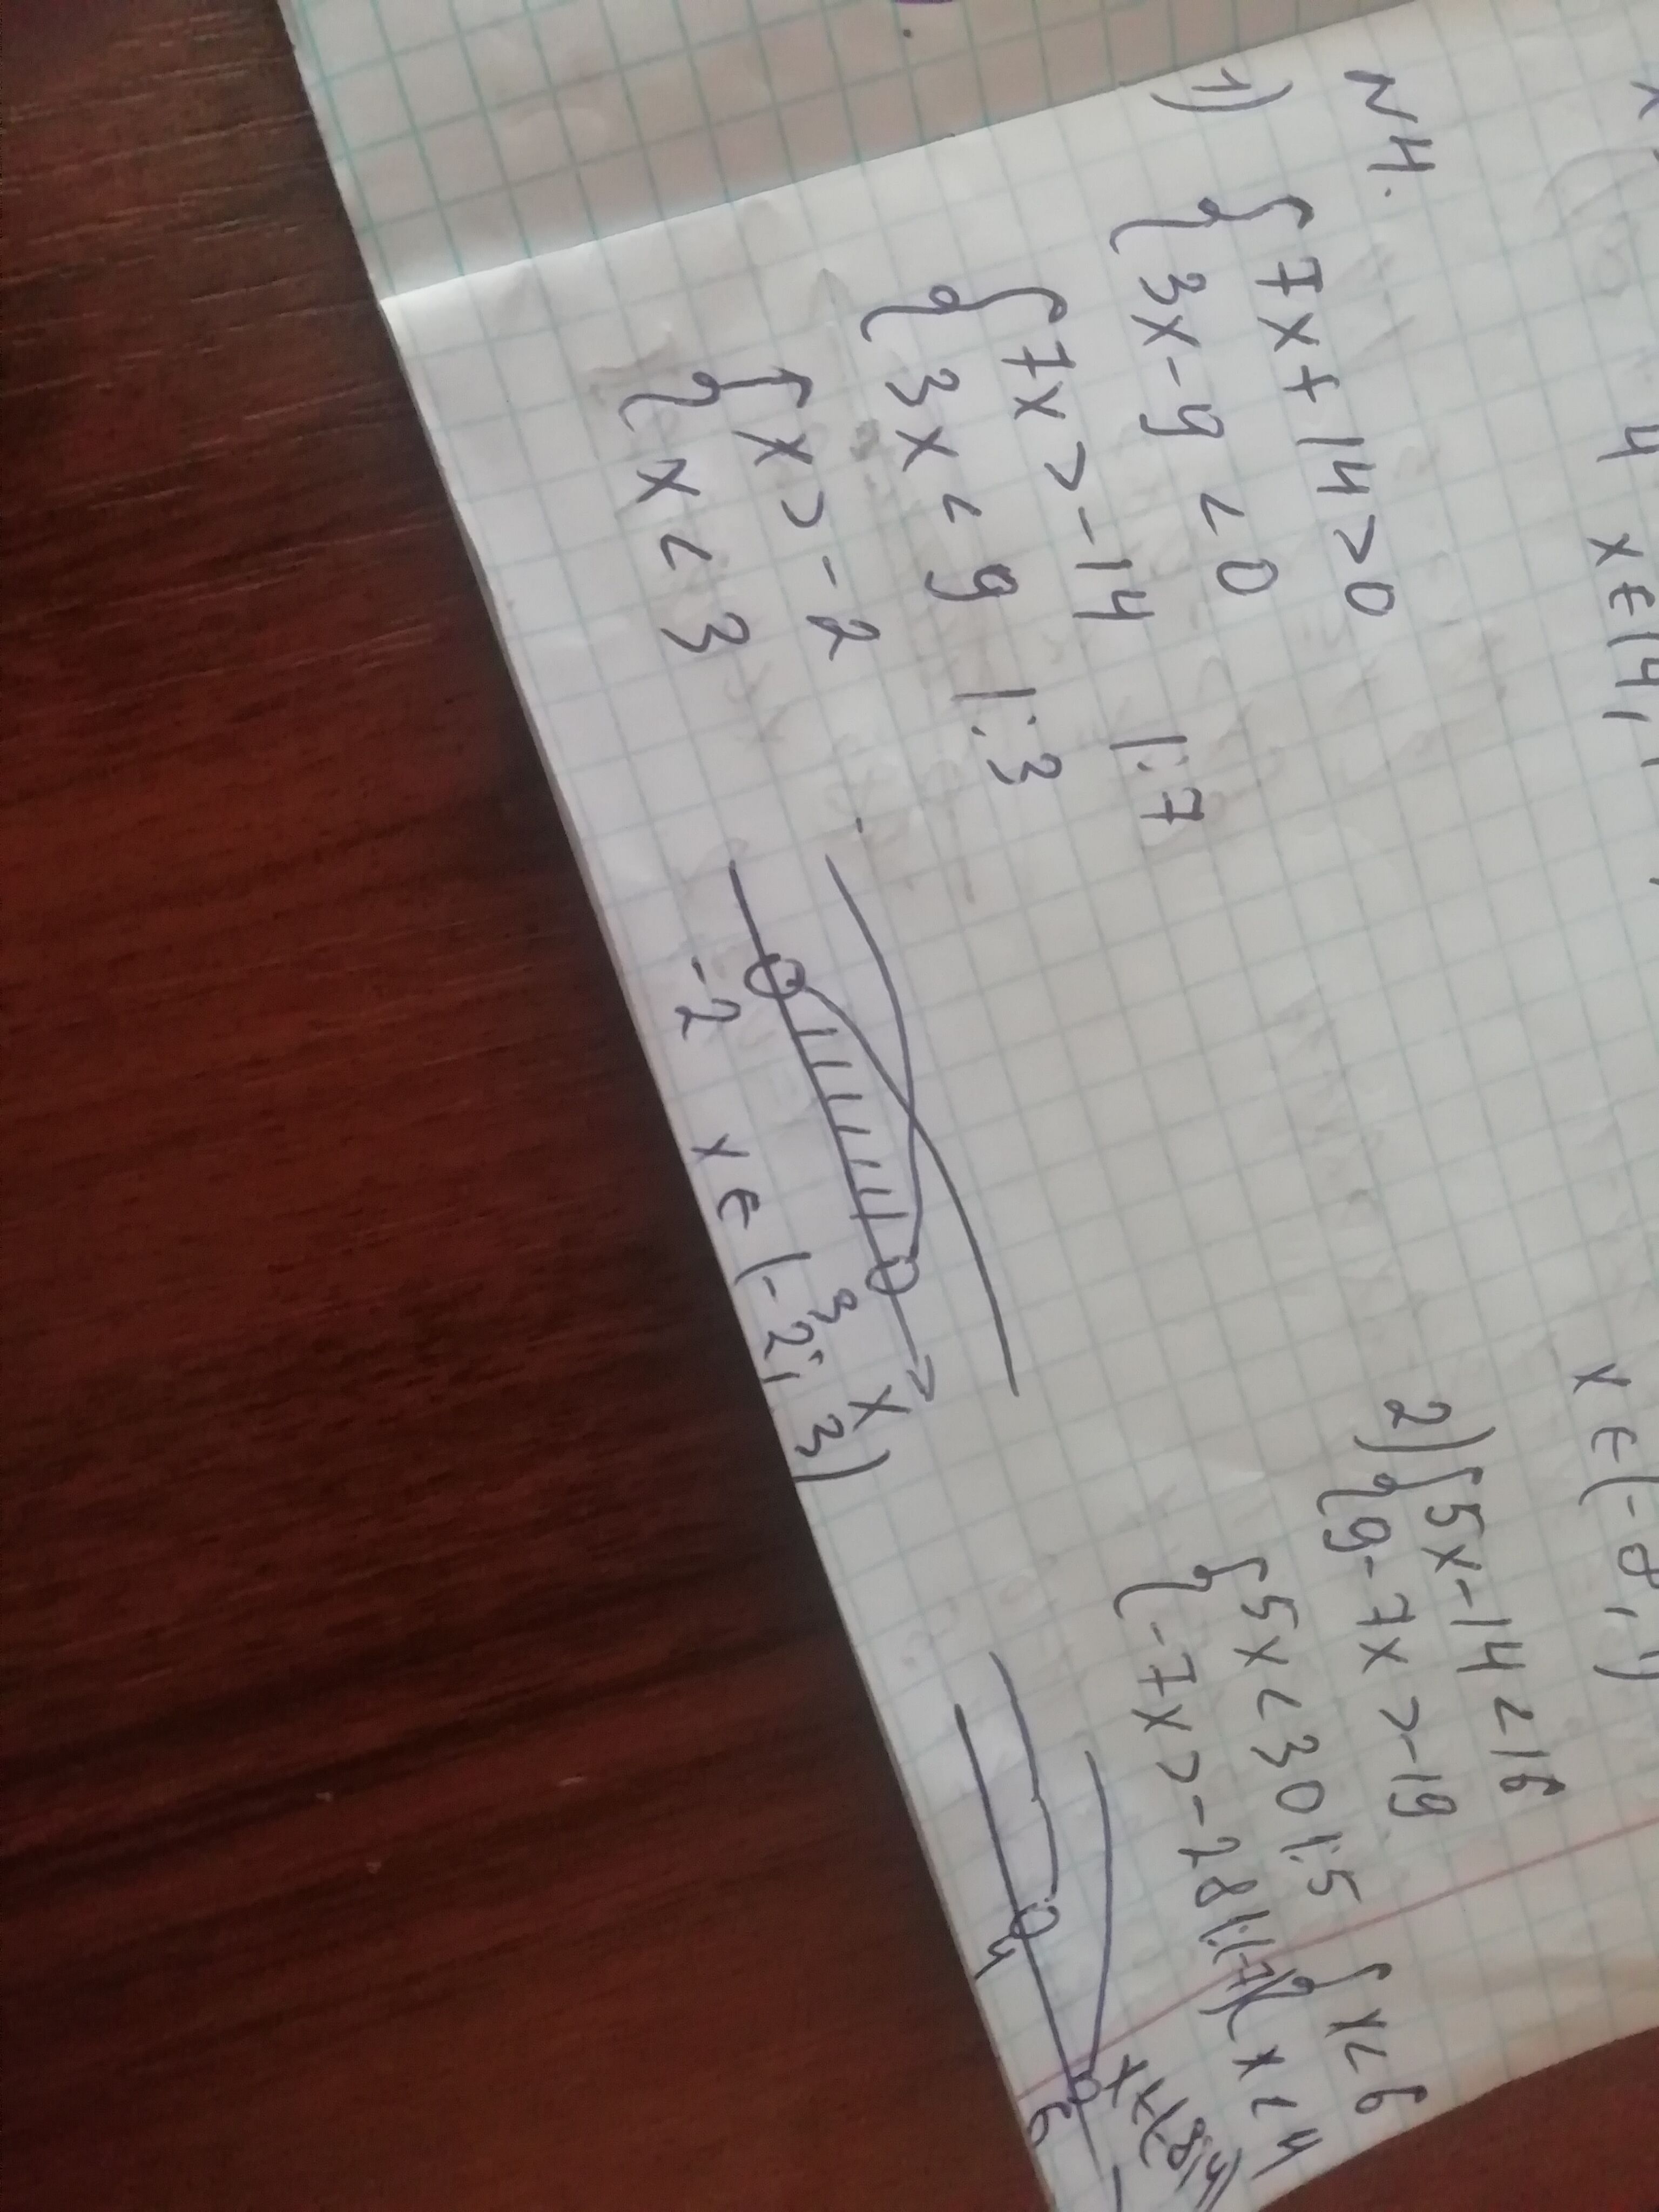 4 x ∈ (4;
x ∈ (-8;
N 4.
1) {7x + 14 > 0
{3x - 9 < 0
{7x > -14 |:7
{3x < 9 |:3
{x > -2
{x < 3
-2 3 x
x ∈ (-2; 3)
2) {5x - 14 < 16
{9 - 7x > -19
{5x < 30 |:5 {x < 6
{-7x > -28 |:(-7) {x < 4
4 6
x ∈ (-8; 4)